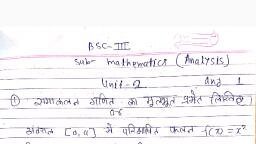 BSC-III
Sub- mathematics (Analysis)
Unit-2 ans 1
① समाकलन गणित का मूलभूत प्रमेय लिखिए
or
अंतराल [0,a] में परिभाषित फलन f(x)=x²